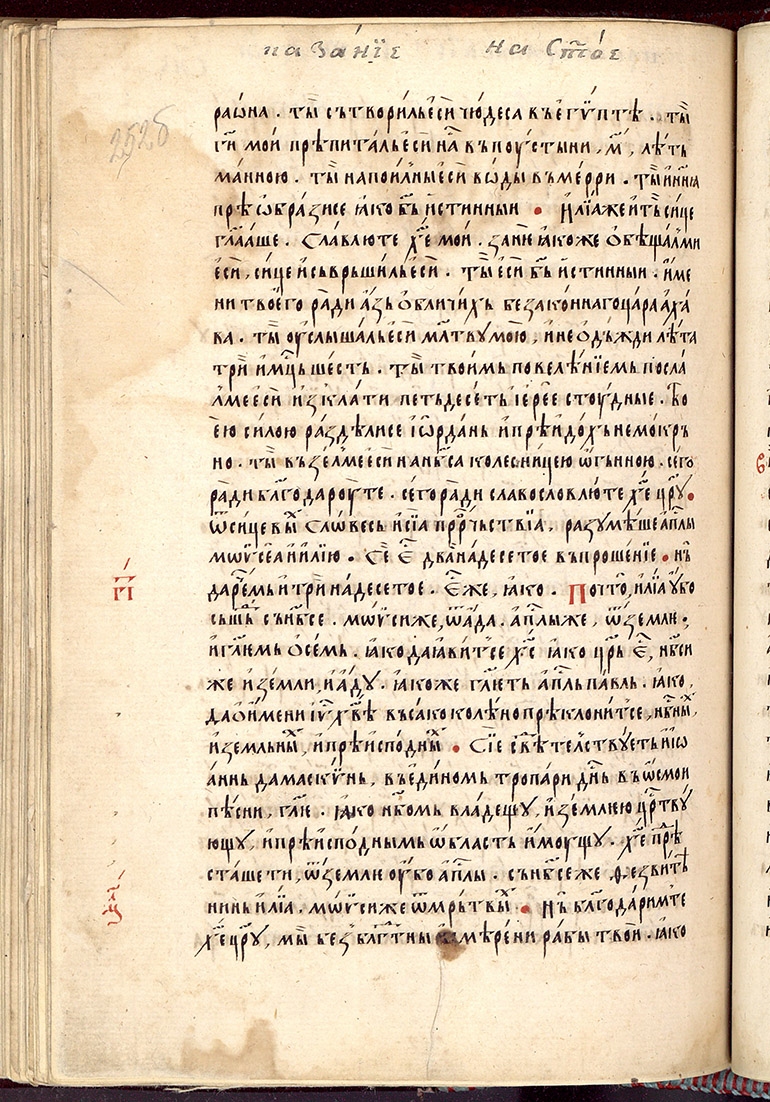 казанїе на ст҃ое
252б
раѡна . ты̀ сътворилъе́си чю́деса въе́гѵ́птѣ . ты̀
гі҃и мои прѣпиталъе́си на̑ въпоу́стыни , м҃ , лѣтъ
ма́нною . ты̀ напои́лныесѝ во́ды въме́рри . ты̀ и҆н҃ѧ
прѣѡ́бразисе ꙗ҆ко бг҃ъ и́стинныи • И҆лїа́жеи҆тъ си́це
гл҃аше . Славлюте хс҃е мои . зане ꙗ҆коже о҆бѣща́лми
е́си , си́це и҆съврьши́лъе́си . ты̀ е́си бг҃ъ и́стинныи . и҆ме
ни твоего ра́ди а҆зъ о҆бличи́хъ безако́ннагоцара а҆ха́
ва . ты̀ оу҆слышалъе́си мл҃твумою̀ , и҆не ѡ҆дъжди лѣ́та
трѝ и҆мц҃ь шесть . ты̀ твоимъ повелѣ́нїемь посла́
лмее́сѝ и҆зкла́ти петьдесе́ть і҆ере́е сту́дные . Тво
е́ю си́лою раздѣлисе і҆ѡрда́нь и҆прѣи́дохънемокрь
но . ты̀ възе́лмее́си нан҃бса колесницею ѡ҆́гньною . сего
ра́ди блг҃одароу́те . сегора́ди славословлюте хс҃е цр҃у •
ѿси́цевы̑х сло́весь и҆сі́а пррⷪ҇чьствїа , разумѣ́ше а҆пл҃ы
мѡѷсе́а и҆и҆лїю . Се е҆ⷭ҇ два̀на́десетое въпроше́нїе • нь
гі҃ даре́мь и҆трѝна́десетое . е҆́же , ꙗ҆ко . Почто̀ , и҆лїа оу҆бо
сьше́д сън҃бсе . мѡѷсиже , ѿа҆да . а҆пл҃ыже , ѿземлѥ ,
и҆гл҃юемь о҆семь . ꙗ҆ко даꙗ҆ви́тсе хс҃ ꙗ҆ко цр҃ь е҆ⷭ҇ , нб҃си
же и҆земли , и҆а҆ду . ꙗ҆коже гл҃ѥть а҆пл҃ь па́вль . ꙗ҆ко ,
да о҆и҆мени і҆у҃ хв҃ѣ въса́ко колѣ́нопрѣклони́тсе , нб҃ны̑х
и҆земльны̑х , и҆прѣи́сподны̑х • Сїе свѣ́телствуетьи҆ѡ
а́ннь дамаскі́нь , въе́диномь тропа́ри дн҃ь въѡ҆смои
пѣ́сни , гл҃ѥ . ꙗ҆ко нб҃омь вла́дещу , и҆землѥю црⷭ҇тву́
ющу , и҆прѣи́спо́днымь ѡ҆бласть и҆моу́щу . хс҃е прѣ́д
ста́шети , ѿземлѥ оу҆бо а҆пл҃ы . сън҃бсеже ѳезви́тѣ
нинь и҆лїа . мѡѷсиже ѿмрьтвы̑х • Нь блг҃ода́римте
хс҃е цр҃у , мы̀ безблгⷣтны и҆смѣре́ни ра́бы твои . ꙗ҆ко